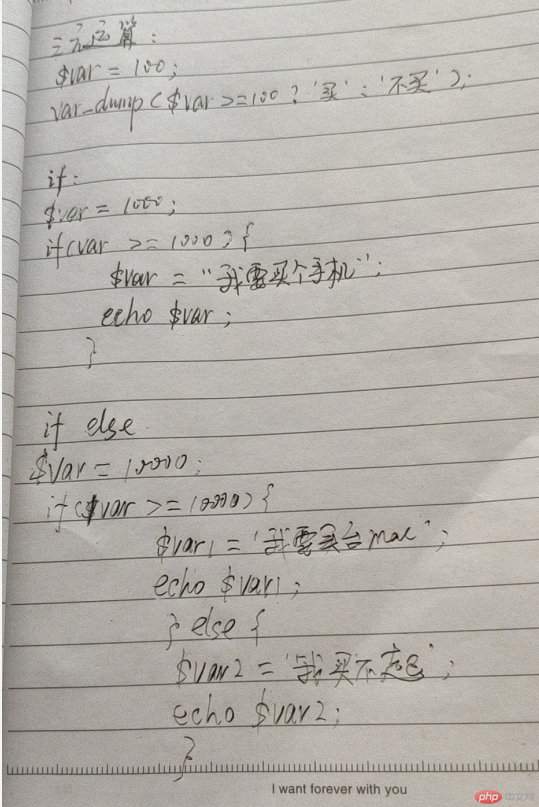 三元运算：
$var = 100;
var_dump($var >=100 ? '买' : '不买');
if:
$var = 1000;
if(var >= 1000) {
$var = "我要买个手机";
echo $var;
}
if else
$var = 10000;
if($var >= 10000) {
$var1 = '我要买台mac';
echo $var1;
} else {
$var2 = '我买不起';
echo $var2;
}
I want forever with you
php 中文网